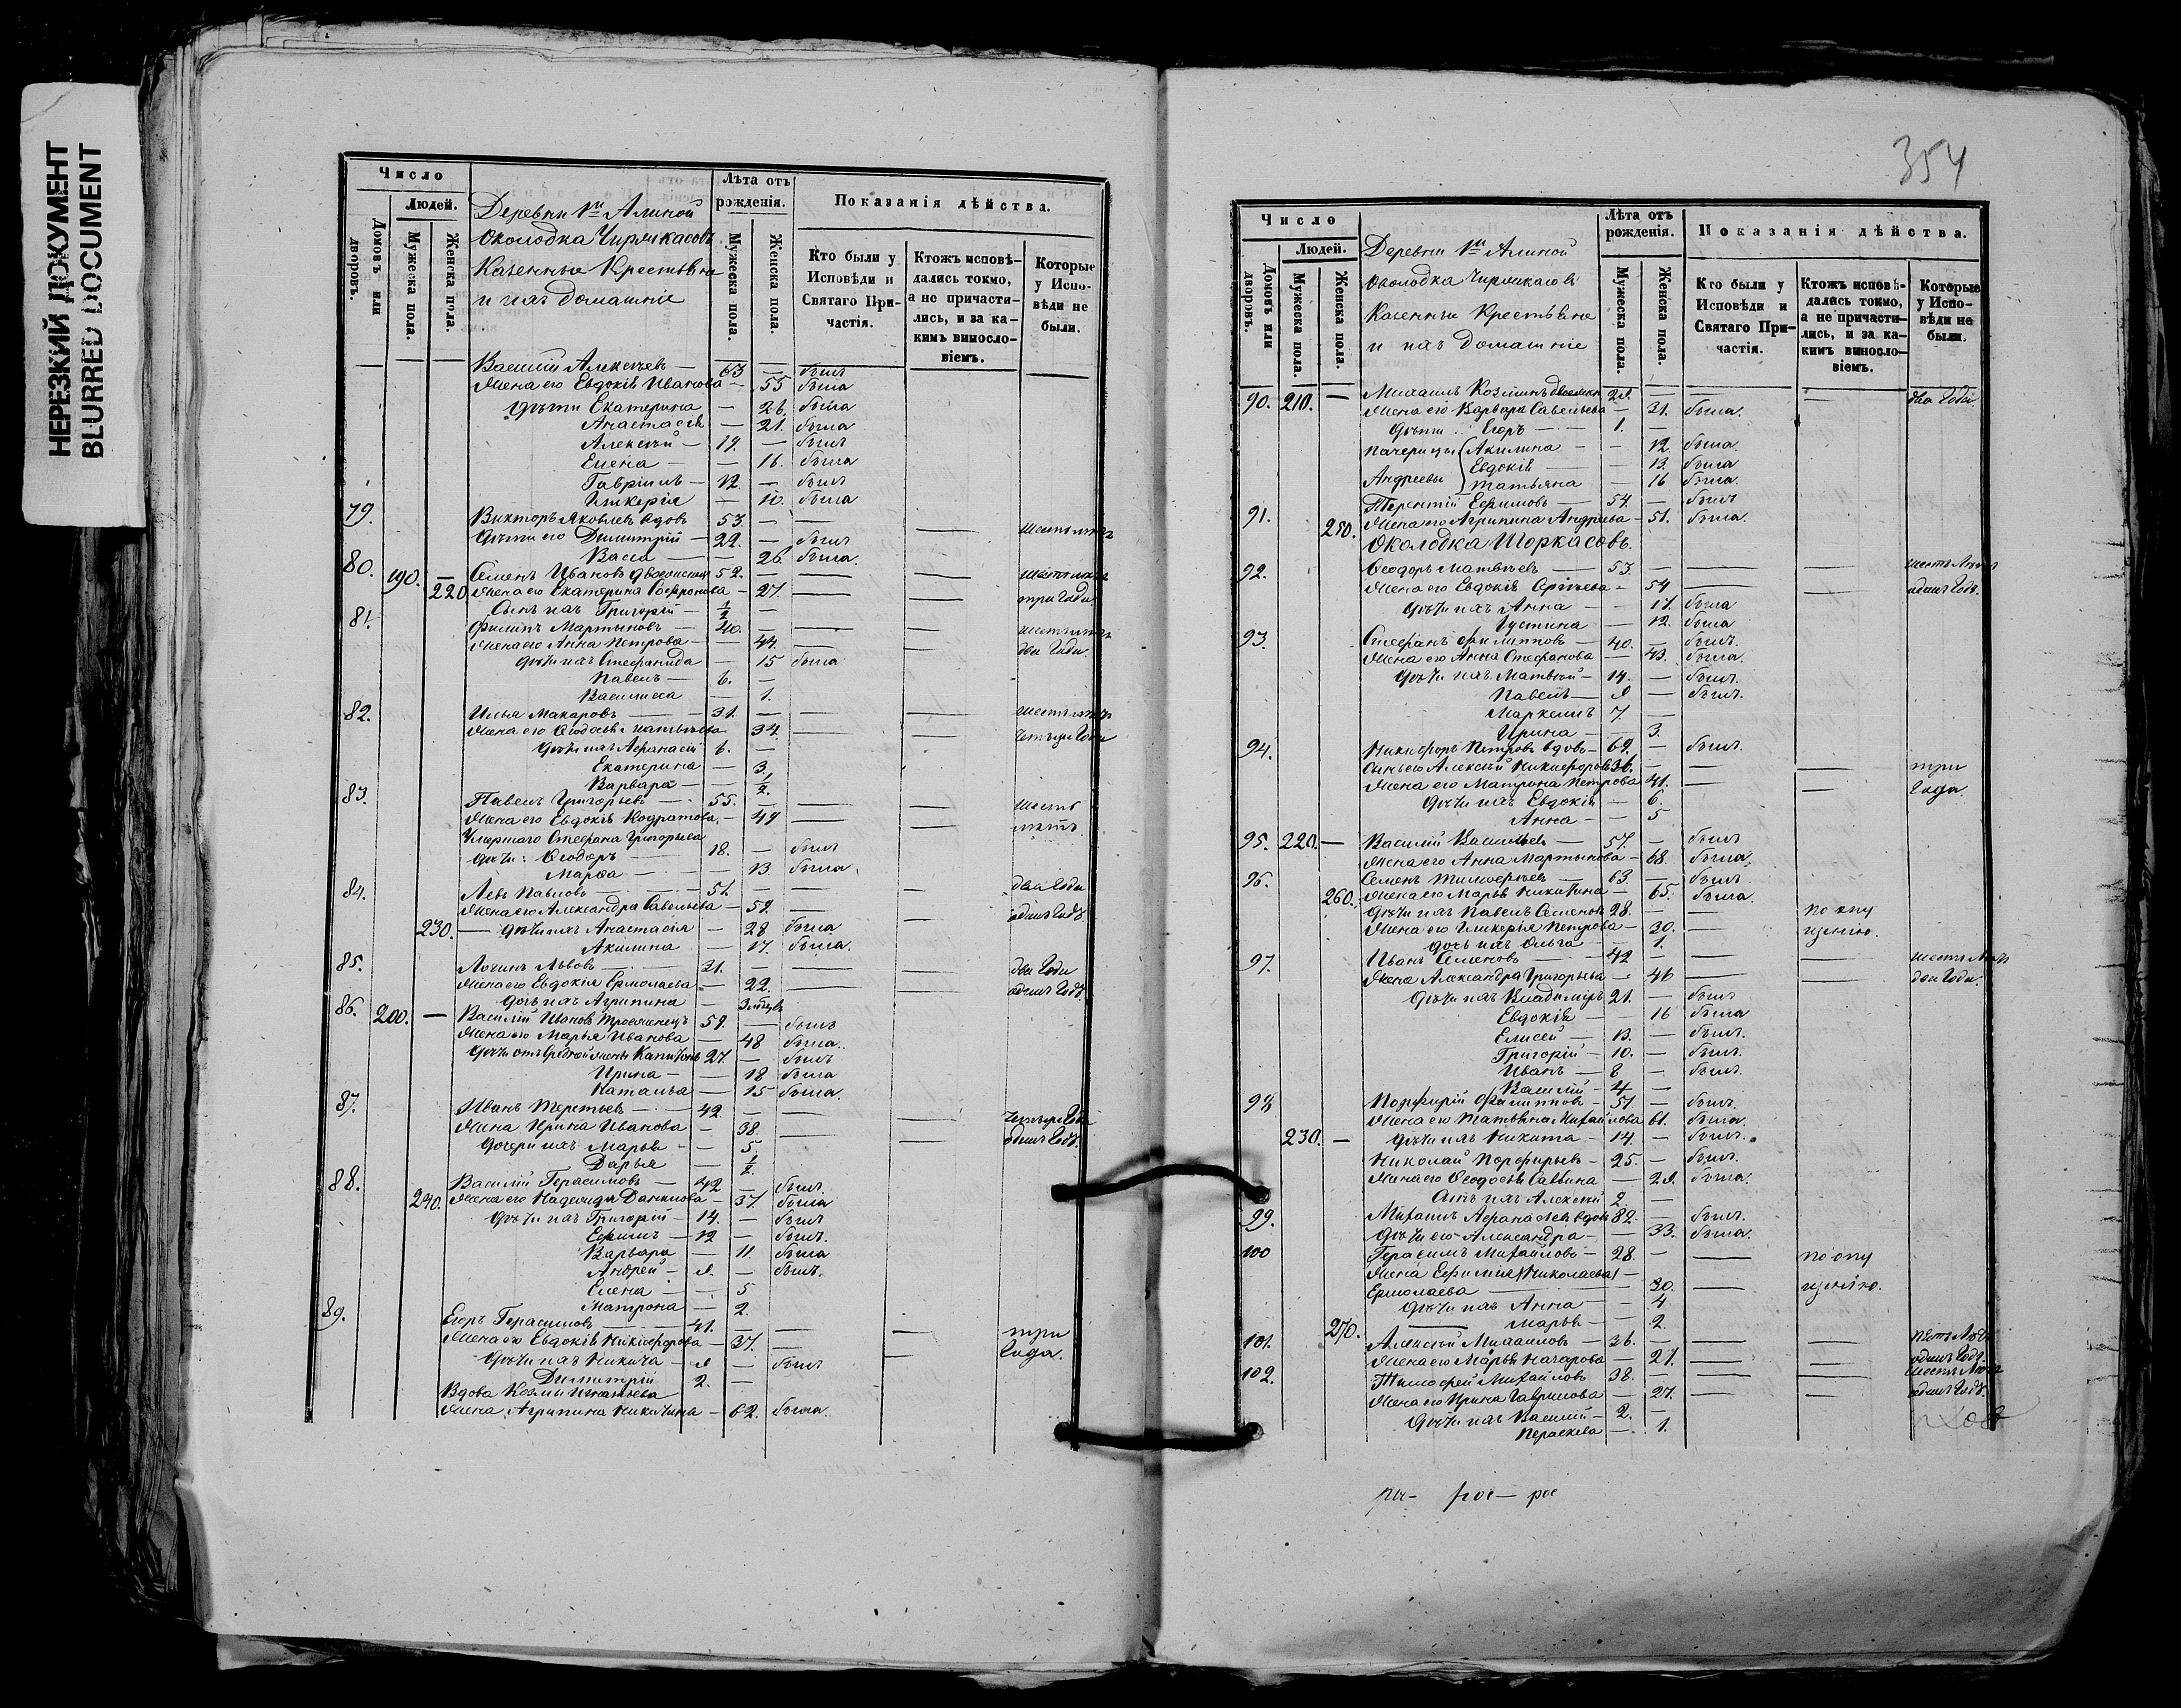 НЕРЕЗКИЙ ДОКУМЕНТ
BLURRED DOCUMENT
Число
Людей.
Домовъ или дворовъ.
Мужеска пола.
Женска пола.
Деревни Алиной
околодка Чирликасовъ
Казенные Крестьяне
и ихъ домашніе
Лѣта отъ рожденія.
Мужеска пола
Женска пола.
Показанія дѣйства.
Кто были у Исповѣди и Святаго Причастія.
Ктожъ исповѣдались токмо, а не причастились, и за какимъ винословіемъ.
Которые у Исповѣди не были.
Василій Алексѣевъ — 63 — былъ
Жена его Евдокія Иванова — 55 была
дѣти Екатерина — 26. была
Анастасія — 21. была
Алексѣй — 19. — былъ
Елена — 16. была
Гавріилъ — 12. — былъ
Гликерія — 10. была
79. Викторъ Яковлевъ вдовъ 53. —
дѣти его Димитрій — 22. — былъ
Васса — 26. была
80. 190. — Семенъ Ивановъ 52. —
220 Жена его Екатерина — 27. три года
Сынъ ихъ Григорій — 1/2 —
81. Филипъ Мартыновъ — 40. —
Жена его Анна Петрова — 44. два года.
дѣти ихъ Стефанида — 15 была
Павелъ — 6. —
Василиса — 1.
82. Илья Макаровъ — 31. —
Жена его Ѳеодосія — 34. четыре года
дѣти ихъ Аѳанасій 6. —
Екатерина — 3.
Варвара — 1/2.
83. Павелъ Григорьевъ — 55. — шесть
Жена его Евдокія Кодратова. — 49 — лѣтъ.
Умершаго Стефана Григорьева
дѣти: Ѳеодоръ — 18. — былъ
Марѳа — 13. была.
84. Левъ Павловъ — 51. — два года
Жена его Александра Савельева — 52. — одинъ годъ.
230. — дѣти ихъ Анастасія — 28 была
Акилина — 17. была.
85. Логинъ Львовъ — 21. — два года
Жена его Евдокія Ермолаева — 22. — одинъ годъ.
дочь ихъ Агрипина — 3 мѣсяц.
86. 200. — Василій Ивановъ троеженецъ 59. — былъ
Жена его Марья Иванова — 48 была.
дѣти отъ жены Капитонъ 27. — былъ
Ирина — 18 была
Наталья — 15 была.
87. Иванъ Терентьевъ — 42. — четыре года
Жена Ирина Иванова — 38. — одинъ годъ.
дочери ихъ Марья — 5.
Дарья — 1/2.
88. Василій Герасимовъ — 42 — былъ.
240. Жена его Надежда Данилова — 37. была
дѣти ихъ Григорій — 14. — былъ
Ефимъ — 12 — былъ.
Варвара — 11. была
Андрей — 9. — былъ.
Елена — 5
Матрона — 2.
89. Егоръ Герасимовъ — 41. — три
Жена его Евдокія Никифорова — 37. — года.
дѣти ихъ Никита — 9 — былъ
Димитрій 2. —
Вдова Козмы Игнатьева
Жена Агрипина Никитина — 62. была.
354
Число
Людей.
Домовъ или дворовъ.
Мужеска пола.
Женска пола.
Деревни Алиной
околодка Чирликасовъ
Казенные Крестьяне
и ихъ домашніе
Лѣта отъ рожденія.
Мужеска пола.
Женска пола.
Показанія дѣйства.
Кто были у Исповѣди и Святаго Причастія.
Ктожъ исповѣдались токмо, а не причастились, и за какимъ винословіемъ.
Которые у Исповѣди не были.
90. 210. — Михаилъ Козминъ 29. — два года
Жена его Варвара Савельева — 31. была.
дѣти Егоръ — 1. —
падчерицы Акилина — 12. была.
Андреевы Евдокія — 13. была
Татьяна — 16 была.
91. Терентій Ефимовъ — 54. — былъ
250. Жена его Агрипина Андреева — 51. была.
Околодка Шоркасовъ.
92. Ѳеодоръ Матвѣевъ — 53. —
Жена его Евдокія Сергѣева — 54 — одинъ годъ.
дѣти ихъ Анна — 17. была
Іустина — 12. была
93. Стефанъ Филипповъ — 40. — былъ.
Жена его Анна Стефанова — 43. была.
дѣти ихъ Матвѣй — 14. — былъ.
Павелъ — 9 — былъ.
Маркелъ 7. —
Ирина — 3.
94. Никифоръ Петровъ вдовъ — 69. — былъ.
Сынъ его Алексѣй Никифоровъ 36. — три
Жена его Матрона Петрова 41. — года.
дѣти ихъ Евдокія — 6.
Анна — 5
95. 220. — Василій Васильевъ — 57. — былъ
Жена его Анна Мартынова — 68. была.
96. Семенъ Тимофеевъ — 63 — былъ
260. Жена его Марья Никитина — 65. была.
дѣти ихъ Павелъ Семеновъ 28. — по опу
Жена его Гликерія Петрова — 30. — щенію.
дочь ихъ Ольга — 1.
97. Иванъ Семеновъ — 42 —
Жена Александра Григорьева — 46 — два года.
дѣти ихъ Владиміръ 21. — былъ
Евдокія — 16 была
Елисей — 13. — былъ.
Григорій — 10. — былъ.
Иванъ — 8 — былъ.
Василій — 4 —
98 Порфирій Филипповъ — 51 — былъ.
Жена его Татьяна Михайлова 61. была.
230. — дѣти ихъ Никита — 14. — былъ.
Николай Порфирьевъ — 25. — былъ.
Жена его Ѳеодосія Саввина — 29. была.
Сынъ ихъ Алексѣй 2. —
99. Михаилъ Аѳанасьевъ вдовъ 82. — былъ.
дѣти его Александра — 33. была.
100 Герасимъ Михайловъ — 28. — по опу
Жена Ефимія (Николаева) —
Ермолаева — 30. — щенію.
дѣти ихъ Анна — 4
270. Марья — 2.
101. Алексѣй Михайловъ — 36. —
Жена его Марья Назарова — 27. — одинъ годъ.
102. Тимофей Михайловъ 38. —
Жена его Ирина Гаврилова — 27. — одинъ годъ.
дѣти ихъ Василій — 2. —
Параскева — 1.